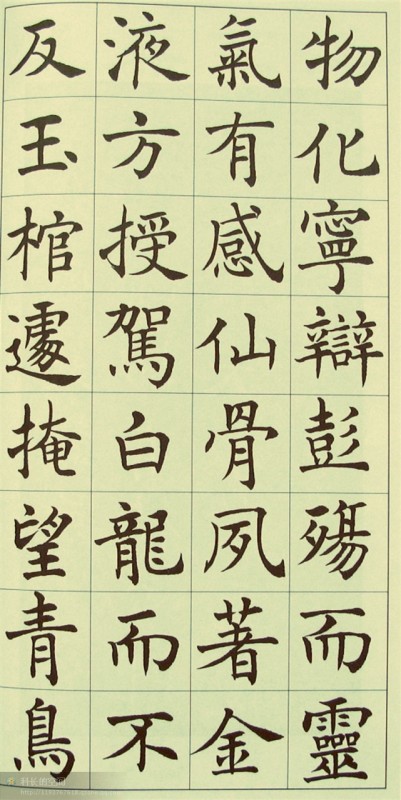 物化寧辯彭殤而靈
氣有感仙骨夙著金
液方授駕白龍而不
反玉棺遽掩望青鳥